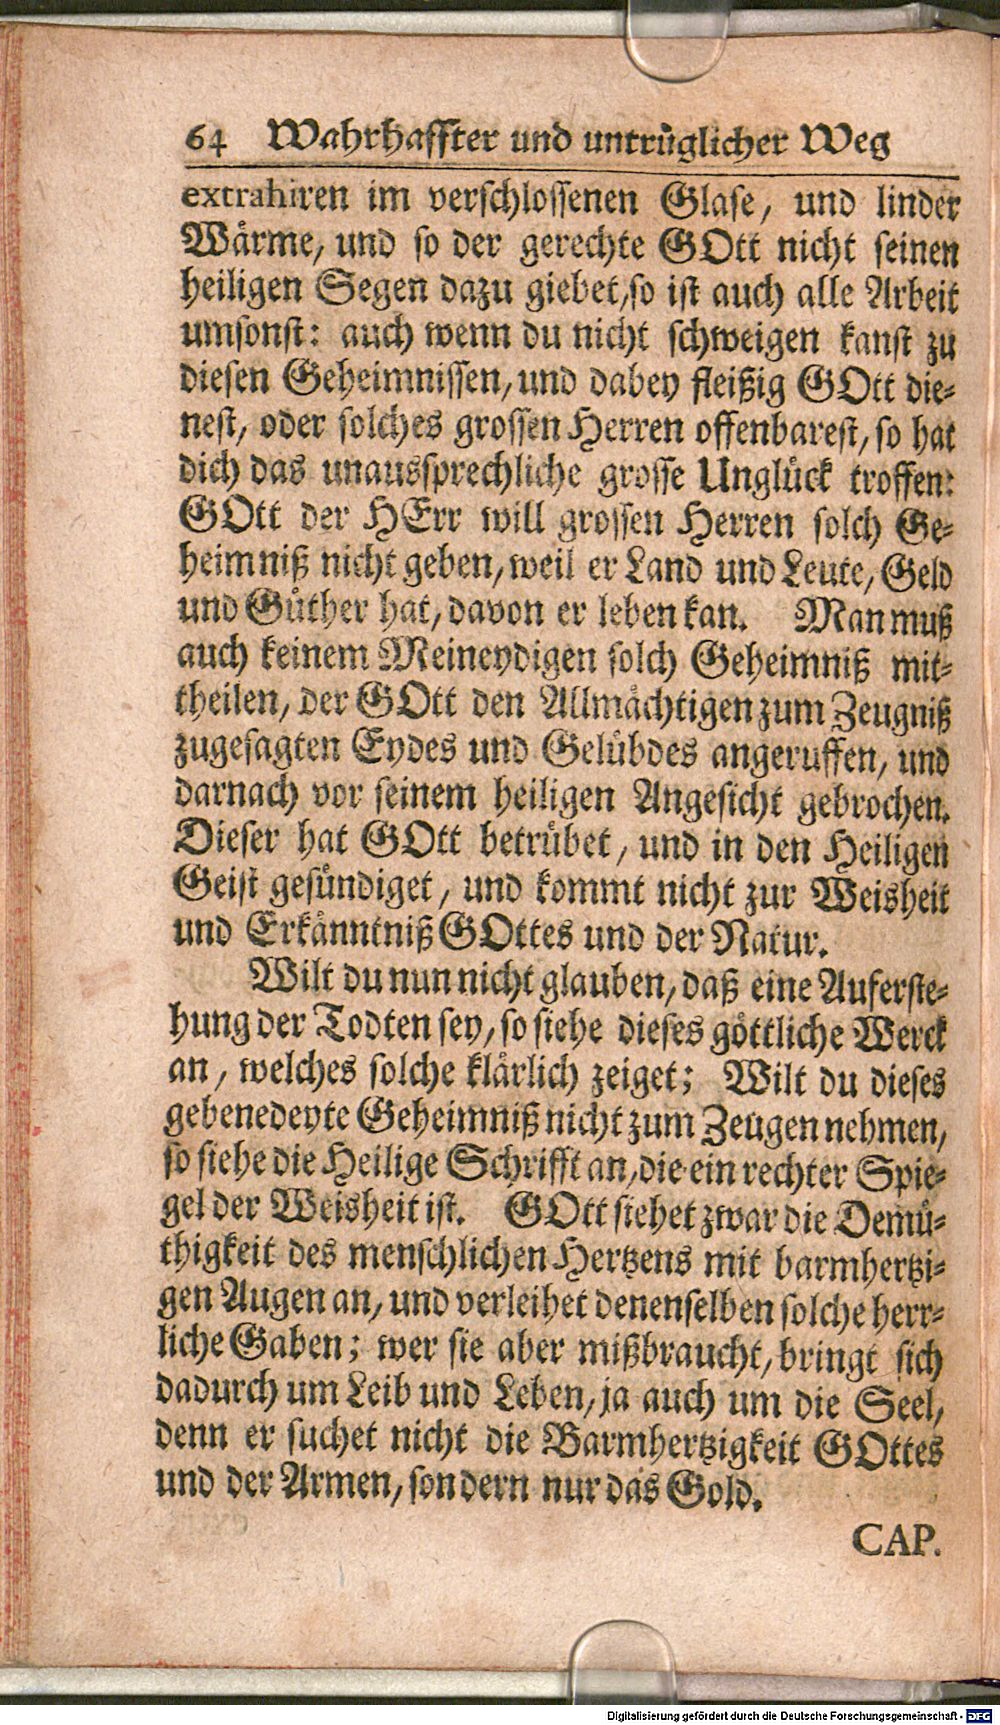 64 Wahrhaffter und untrüglicher Weg
extrahiren im verschlossenen Glase, und linder
Wärme, und so der gerechte GOtt nicht seinen
heiligen Segen dazu giebet, so ist auch alle Arbeit
umsonst: auch wenn du nicht schweigen kanst zu
diesen Geheimnissen, und dabey fleißig GOtt die-
nest, oder solches grossen Herren offenbarest, so hat
dich das unaussprechliche grosse Unglück troffen:
GOtt der HErr will grossen Herren solch Ge-
heimniß nicht geben, weil er Land und Leute, Geld
und Güther hat, davon er leben kan. Man muß
auch keinem Meineydigen solch Geheimniß mit-
theilen, der GOtt den Allmächtigen zum Zeugniß
zugesagten Eydes und Gelübdes angeruffen, und
darnach vor seinem heiligen Angesicht gebrochen.
Dieser hat GOtt betrübet, und in den Heiligen
Geist gesündiget, und kommt nicht zur Weisheit
und Erkänntniß GOttes und der Natur.
Wilt du nun nicht glauben, daß eine Auferste-
hung der Todten sey, so siehe dieses göttliche Werck
an, welches solche klärlich zeiget; Wilt du dieses
gebenedeyte Geheimniß nicht zum Zeugen nehmen,
so siehe die Heilige Schrifft an, die ein rechter Spie-
gel der Weisheit ist. GOtt siehet zwar die Demü-
thigkeit des menschlichen Hertzens mit barmhertzi-
gen Augen an, und verleihet denenselben solche herr-
liche Gaben; wer sie aber mißbraucht, bringt sich
dadurch um Leib und Leben, ja auch um die Seel,
denn er suchet nicht die Barmhertzigkeit GOttes
und der Armen, sondern nur das Gold.
CAP.
Digitalisierung gefördert durch die Deutsche Forschungsgemeinschaft - DFG